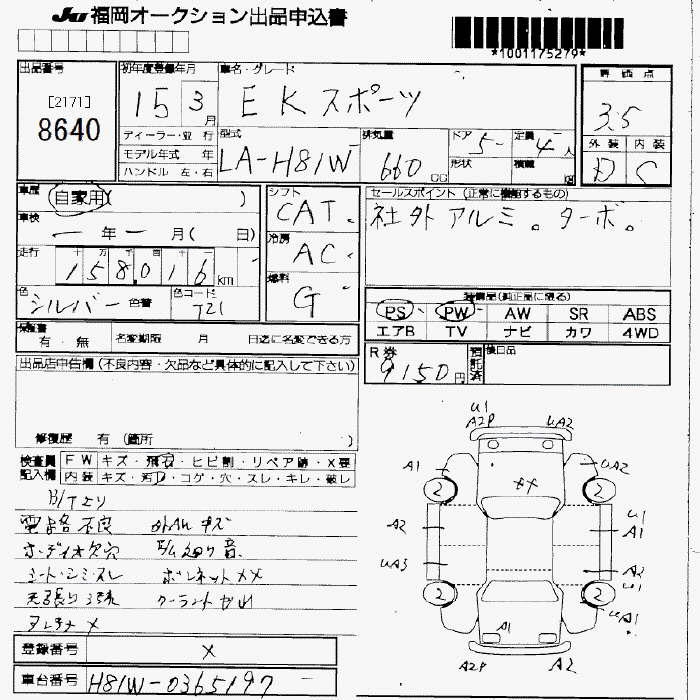 JU 福岡オークション出品申込書
*1001175279*
出品番号
[2171]
8640
初年度登録年月
15 3月
車名・グレード
EKスポーツ
評価点
3.5
ディーラー・並行
モデル年式 年
ハンドル 左・右
型式
LA-H81W
排気量
660 cc
ドア 5
形状
定員 4人
積載
外装 内装
D C
車歴
自家用( )
車検
ー年ー月( 日)
走行
十 万 千 百 十 一
158016 km
色
シルバー 色替
色コード
T21
シフト
CAT.
冷房
AC.
燃料
G
セールスポイント (正常に機能するもの)
社外アルミ。ターボ。
装備品(純正品に限る)
PS PW AW SR ABS
エアB TV ナビ カワ 4WD
保証書
有・無
名変期限 月 日迄に名変できる方
R券
9150円
預託済
後日品
出品店申告欄 (不良内容・欠品など具体的に記入して下さい)
修復歴 有 (箇所 )
検査員記入欄
FW キズ・飛石・ヒビ割・リペア跡・X要
内装 キズ・汚れ・コゲ・穴・スレ・キレ・破レ
電格不良
オーディオ欠穴
シート・シミ・スレ
ボンネットXX
登録番号
X
車台番号
H81W-0365197
U1
A2P UA2
A1 XX UA2
2 2
A2 U1
A1
UA3 A2
U1
2 2
A1 UA1
A2P A2